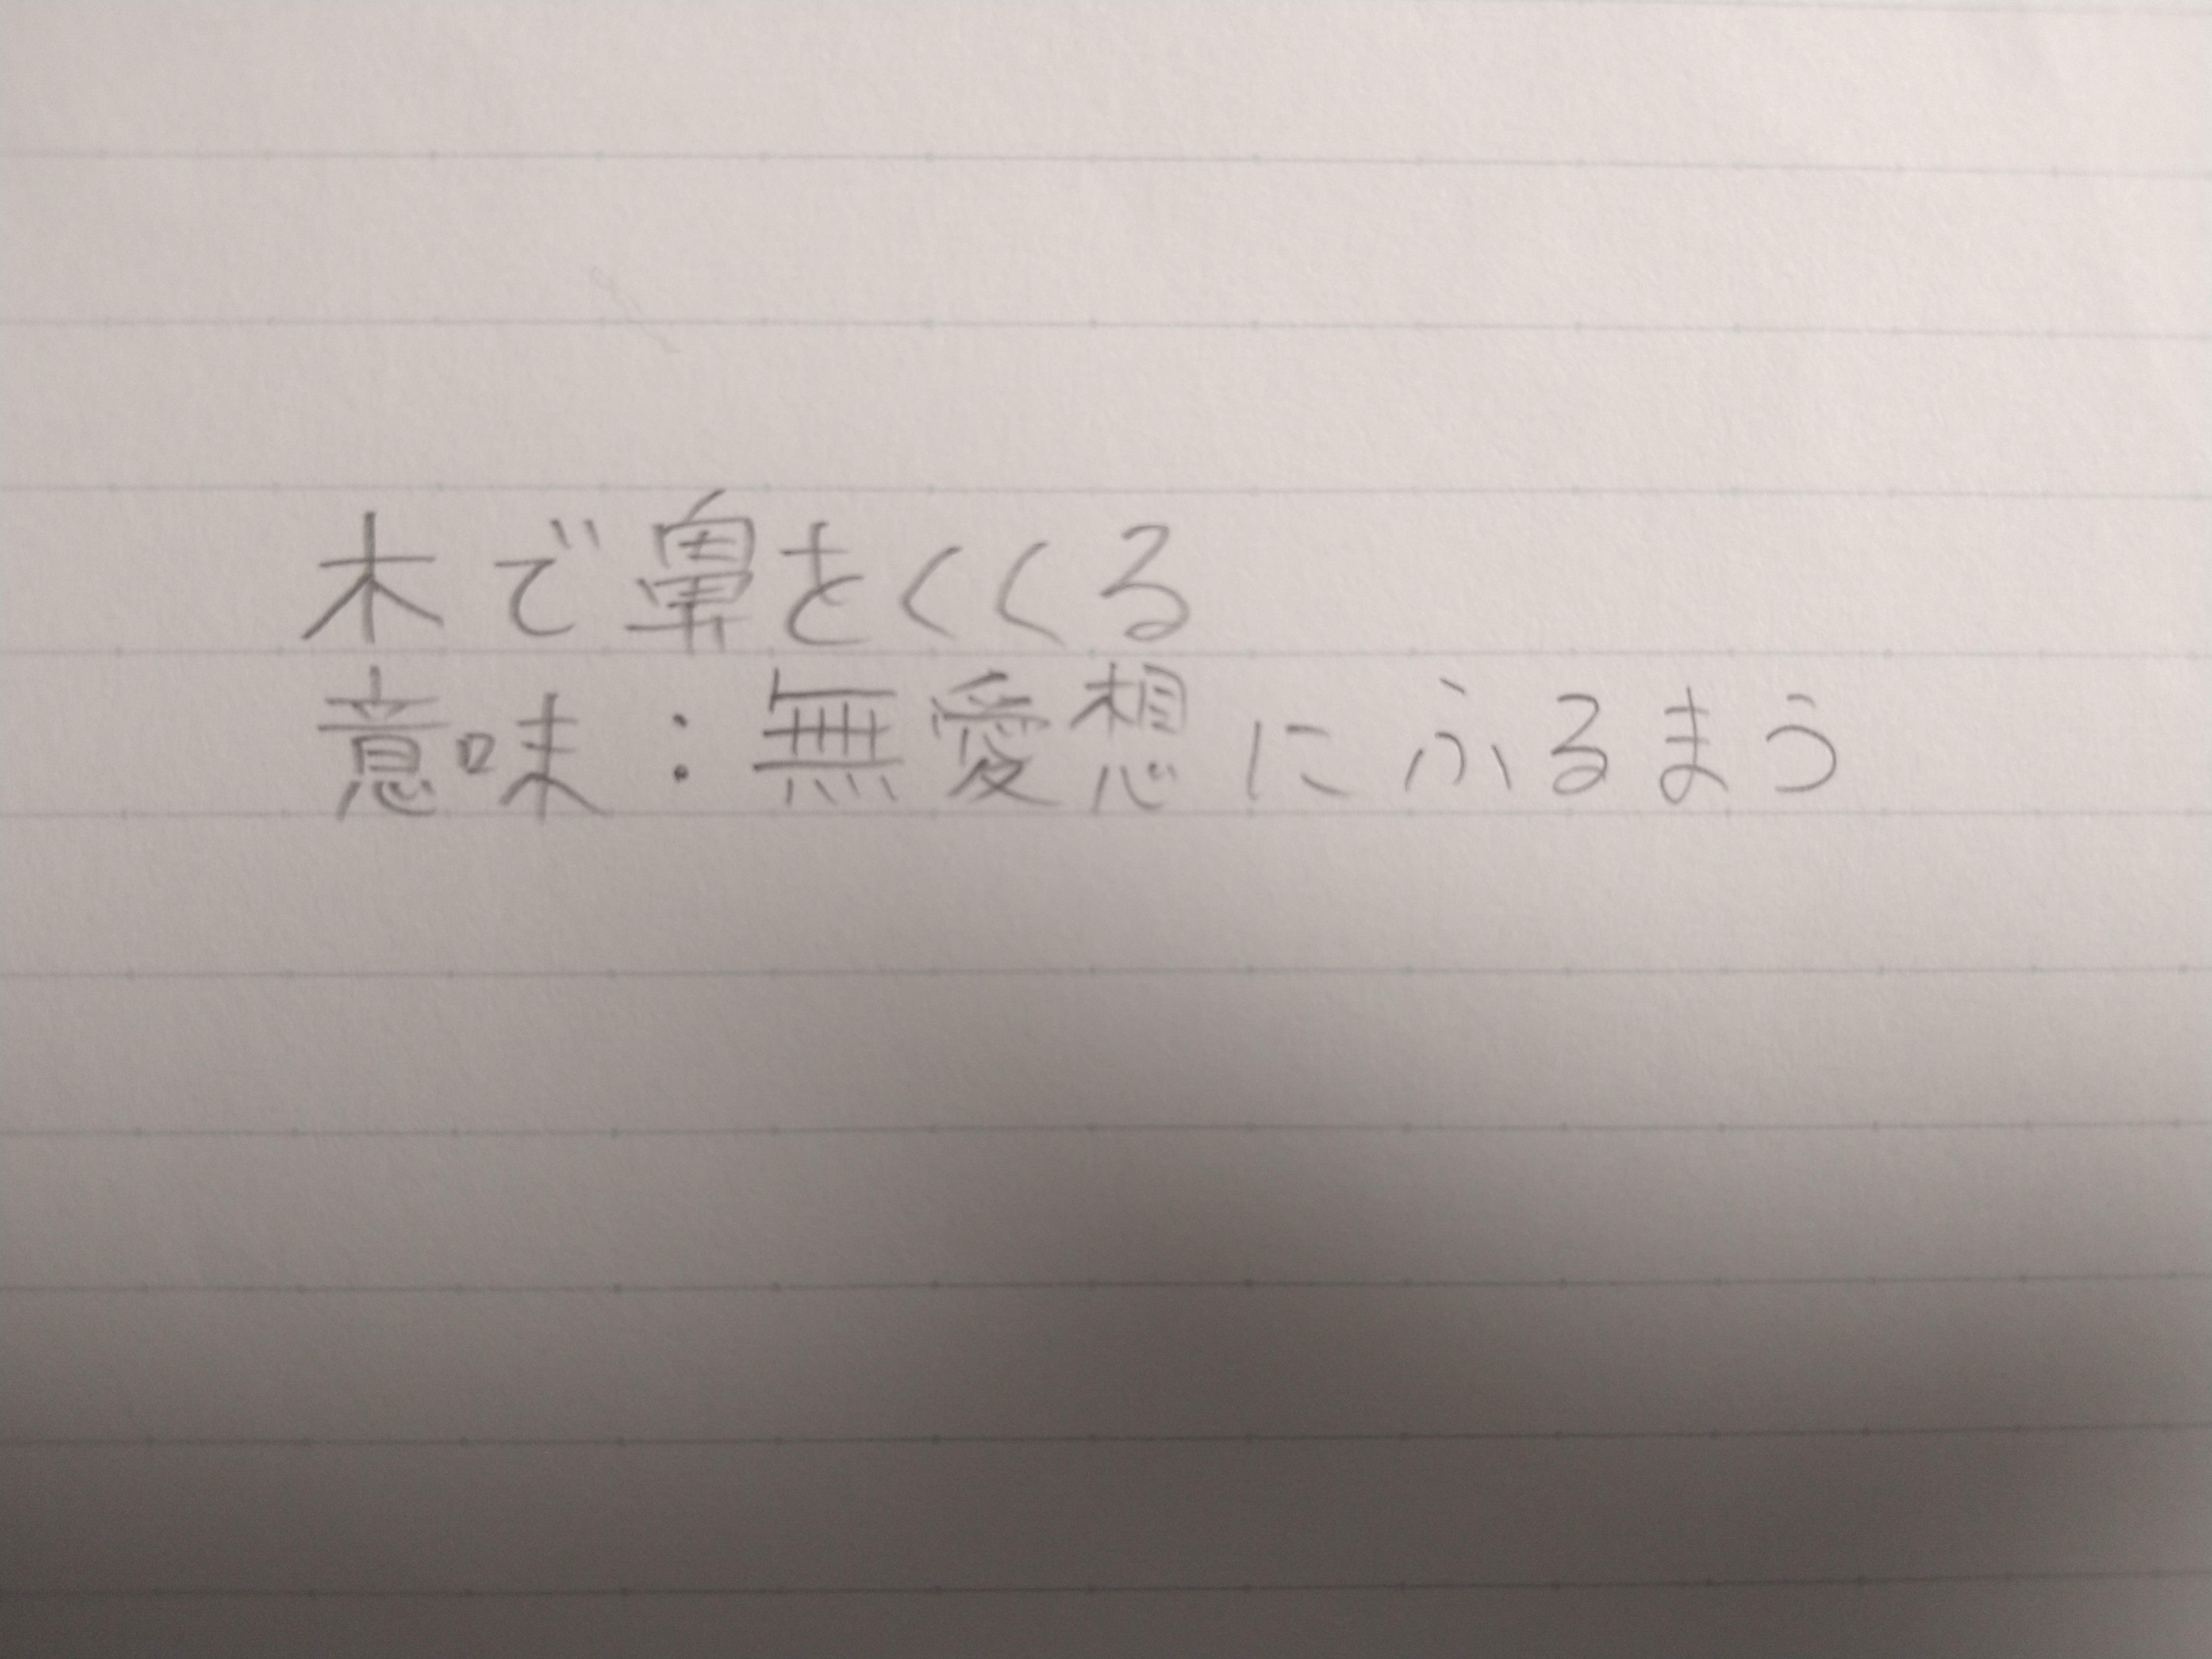 木で鼻をくくる
意味：無愛想にふるまう